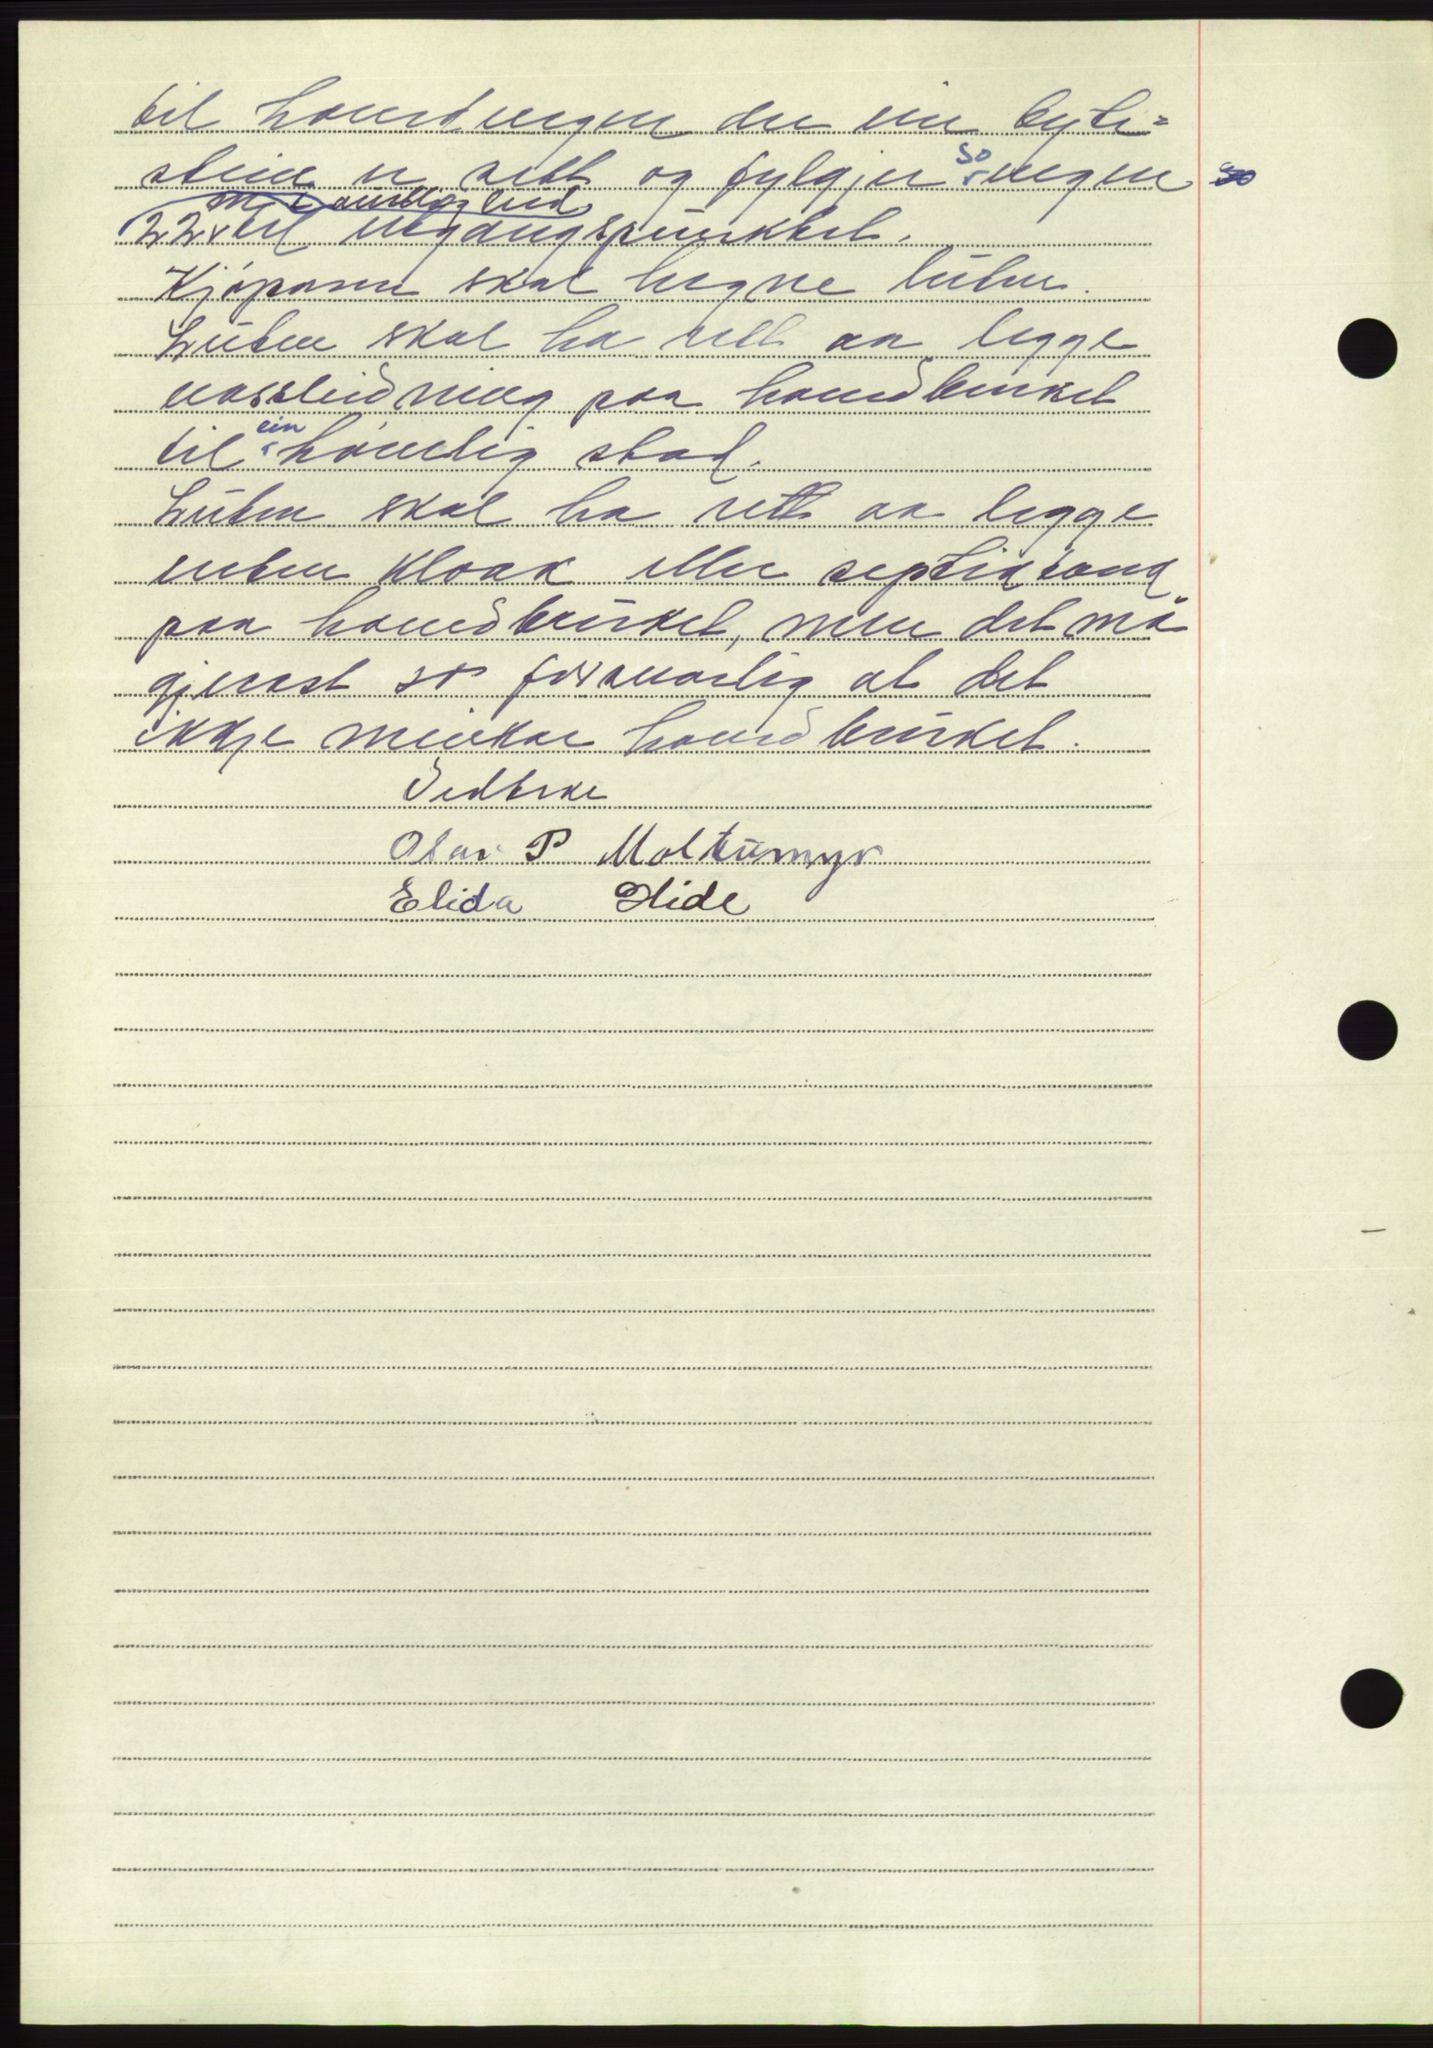 til hovudvegen der ein byte=
stein er sett og fylgjer so vegen so
m i austleg leid
22 til utgangspunktet.
Kjøparen skal hegne luten.
Luten skal ha rett aa legge
vassleidning paa hovudbruket
til ein høveleg stad.
Luten skal ha rett aa legge
enten kloak eller septiktank
paa hovudbruket, men det må
gjerast so forsvarlig at det
ikkje minkar hovudbruket.
Vedteke
Olav P Moltumyr
Elida Hide